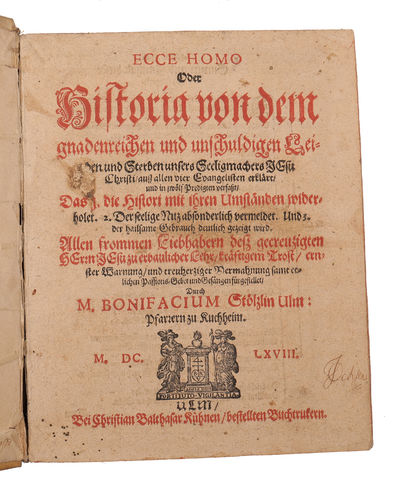 ECCE HOMO
Oder
Historia von dem
gnadenreichen und unschuldigen Lei-
den und Sterben unsers Seeligmachers JEsu
Christi/ auß allen vier Evangelisten erkläret/
und in zwölf Predigten verfaßt/
Das 1. die Histori mit ihren Umständen wider-
holet. 2. Der seelige Nutz absonderlich vermeldet. Und 3.
der hailsame Gebrauch deutlich gezeigt wird.
Allen frommen Liebhabern deß gecreuzigten
HErrn JEsu zu erbaulicher Lehr/ kräftigem Trost/ ern-
ster Warnung/ und treuherziger Vermahnung samt et-
lichen Passions-Gebet und Gesängen fürgestellet/
Durch
M. BONIFACIUM Stölzlin Ulm:
Pfarrern zu Kuchheim.
M. DC. LXVIII.
FORTITUDO VIGILANTIA
ULM/
Bei Christian Balthasar Kühnen/ bestellten Buchtrukern.